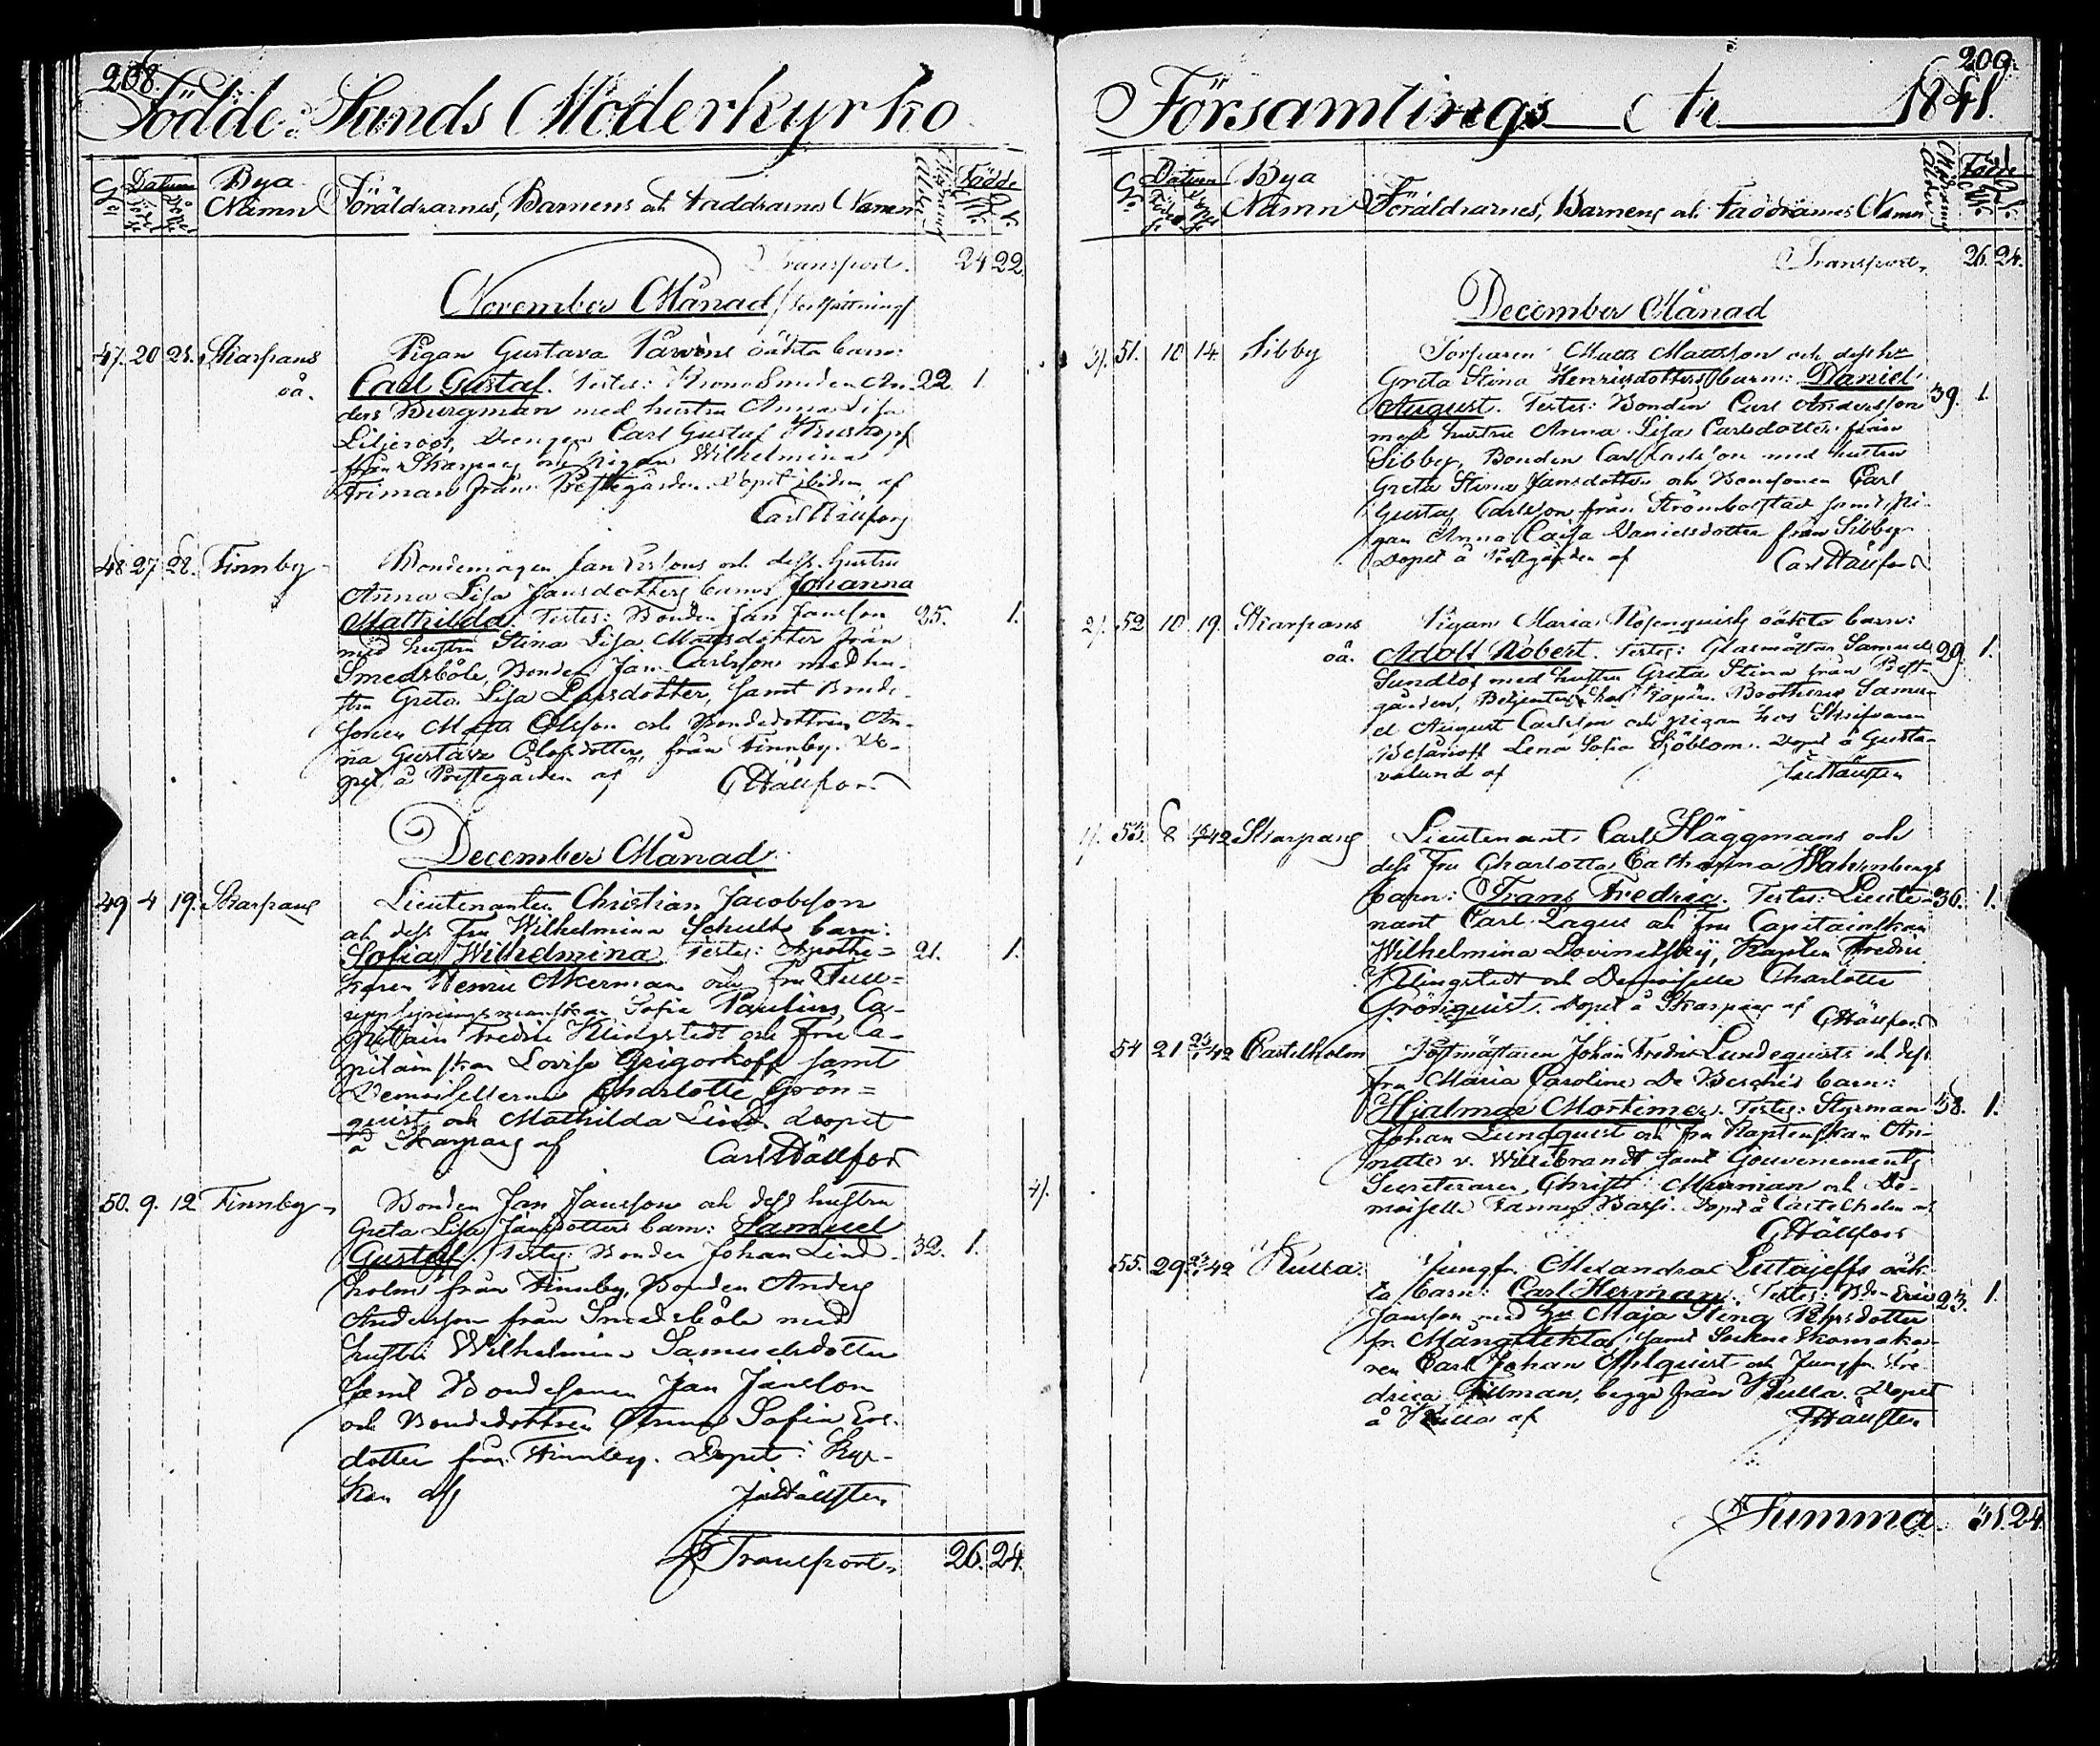 208.
Födde i Sunds Moderkyrko
No
Datum
Bya
Namn
Föräldrarnes, Barnens och Faddrarnes Namn
Födde
Transport. 24 22.
November Månad
47. 20 25. Skarpans
oä.
Pigan Gustava oäkta barn:
Carl Gustaf. Testes: Krono Smeden An- 22. 1.
ders Burgman med hustru Anna Lisa
Liljeroos, Drengen Carl Gustaf
från Skarpans och pigan Wilhelmina
Friman från Prestegården. Döpet ibidem af
Carl Hällfors
48 27 28. Finnby
Bondemågen Jan och dess hustru
Anna Lisa Jansdotters barn: Johanna
Mathilda. Testes: Bonden Jan Jansson 25. 1.
med hustru Stina Lisa Mattsdotter från
Smedsböle, Bonden Jan Carlsson med hu-
stru Greta Lisa Larsdotter, samt Bonde-
sonen Matts Olsson och Bondedottren An-
na Gustava Olofsdotter, från Finnby. Dö-
pet å Prestegården af C Hällfors
December Månad
49 4 19. Skarpans
Lieutenanten Christian Jacobsson
och dess Fru Wilhelmina Schults barn:
Sofia Wilhelmina. Testes: Apothe= 21. 1.
karen Henric Åkerman och Fru Tull=
Sofia Paulins, Ca-
pitain Fredric Klingstedt och Fru Ca-
pitainskan Lovisa Grigorkoff samt
Demoisellerna Charlotte Grön=
quist och Mathilda Lind. Döpet
å Skarpans af Carl Hällfors
50. 9. 12 Finnby
Bonden Jan Jansson och dess hustru
Greta Lisa Jansdotters barn: Samuel
Gustaf. Testes: Bonden Johan Lind- 32. 1.
holm från Finnby, Bonden Anders
Andersson från Smedsböle med
hustru Wilhelmina Samuelsdotter
samt Bondesonen Jan Jansson
och Bondedottren Anna Sofia Ers-
dotter från Finnby. Döpet i Kyr-
kan af
Transport. 26. 24.
209.
Församlings År 1841.
No
Datum
Bya
Namn
Föräldrarnes, Barnens och Faddrarnes Namn
Födde
Transport. 26. 24.
December Månad
51. 10 14. Sibby
Torparen Matts Mattsson och dess hu
Greta Stina Henriksdotters barn: Daniel
August. Testes: Bonden Carl Andersson 39. 1.
med hustru Anna Lisa Carlsdotter från
Sibby, Bonden Carl Carlsson med hustru
Greta Stina Jansdotter och Bondsonen Carl
Gustaf Carlsson från Strömbolstad samt pi-
gan Anna Caisa Danielsdotter från Sibby
Döpet å Prestgården af Carl Hällfors
52 10 19. Skarpans
oä.
Pigan Maria Rosenquists oäkta barn:
Adolf Robert. Testes: Glasmästar Samuel 29. 1.
Sundlöf med hustru Greta Stina från Prest-
gården, Betjenten hos Samu-
el August Carlsson och pigan hos Skrifvaren
Lena Sofia Sjöblom. Döpet å Gusta-
valund af
53. 8 42 Skarpans
Lieutenant Carl Häggmans och
dess Fru Charlotta Catharina Wahrenbergs
barn: Frans Fredric. Testes: Lieute- 36. 1.
nant Carl Lagus och Fru Capitainskan
Wilhelmina, Kapten Fredric
Klingstedt och Demoiselle Charlotte
Grönquist. Döpet å Skarpans af C Hällfors
54 21 42 Castelholm
Postmästaren Johan Fredric Lundequists och dess
fru Maria Carolina De Besches barn:
Hjalmar Mortimer. Testes: Styrman 38. 1.
Johan Lundquist och Fru Kaptenskan An-
nette v. Willebrandt samt Gouvernements
Secreteraren Christ: Meurman och De-
moiselle Fanny. Döpet å Castelholm af
C Hällfors
55. 29 42 Kulla
Jungfr. Alexandra oäk-
ta barn: Carl Herman. Testes: Bdn Eric 23. 1.
Jansson med hu Maja Stina Pehrsdotter
fr. Mångstekta, samt Sockne Skomaka-
ren Carl Johan Ahlquist och Jungfr. Fre-
drica Tillman, begge från Kulla. Döpet
å Kulla af
Summa. 31. 24